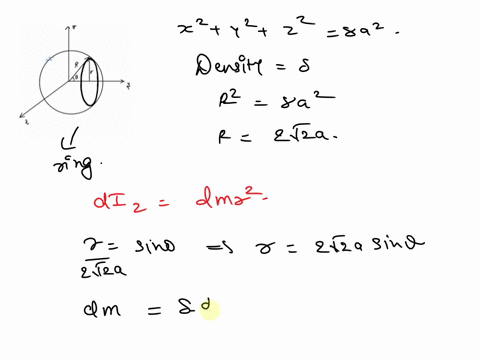 x² + y² + z² = 8a².
Density = δ
R² = 8a²
R = 2√2a.
R
θ
r
ring.
dI₂ = dmr².
r/2√2a = sinθ ⇒ r = 2√2a sinθ
dm = δ